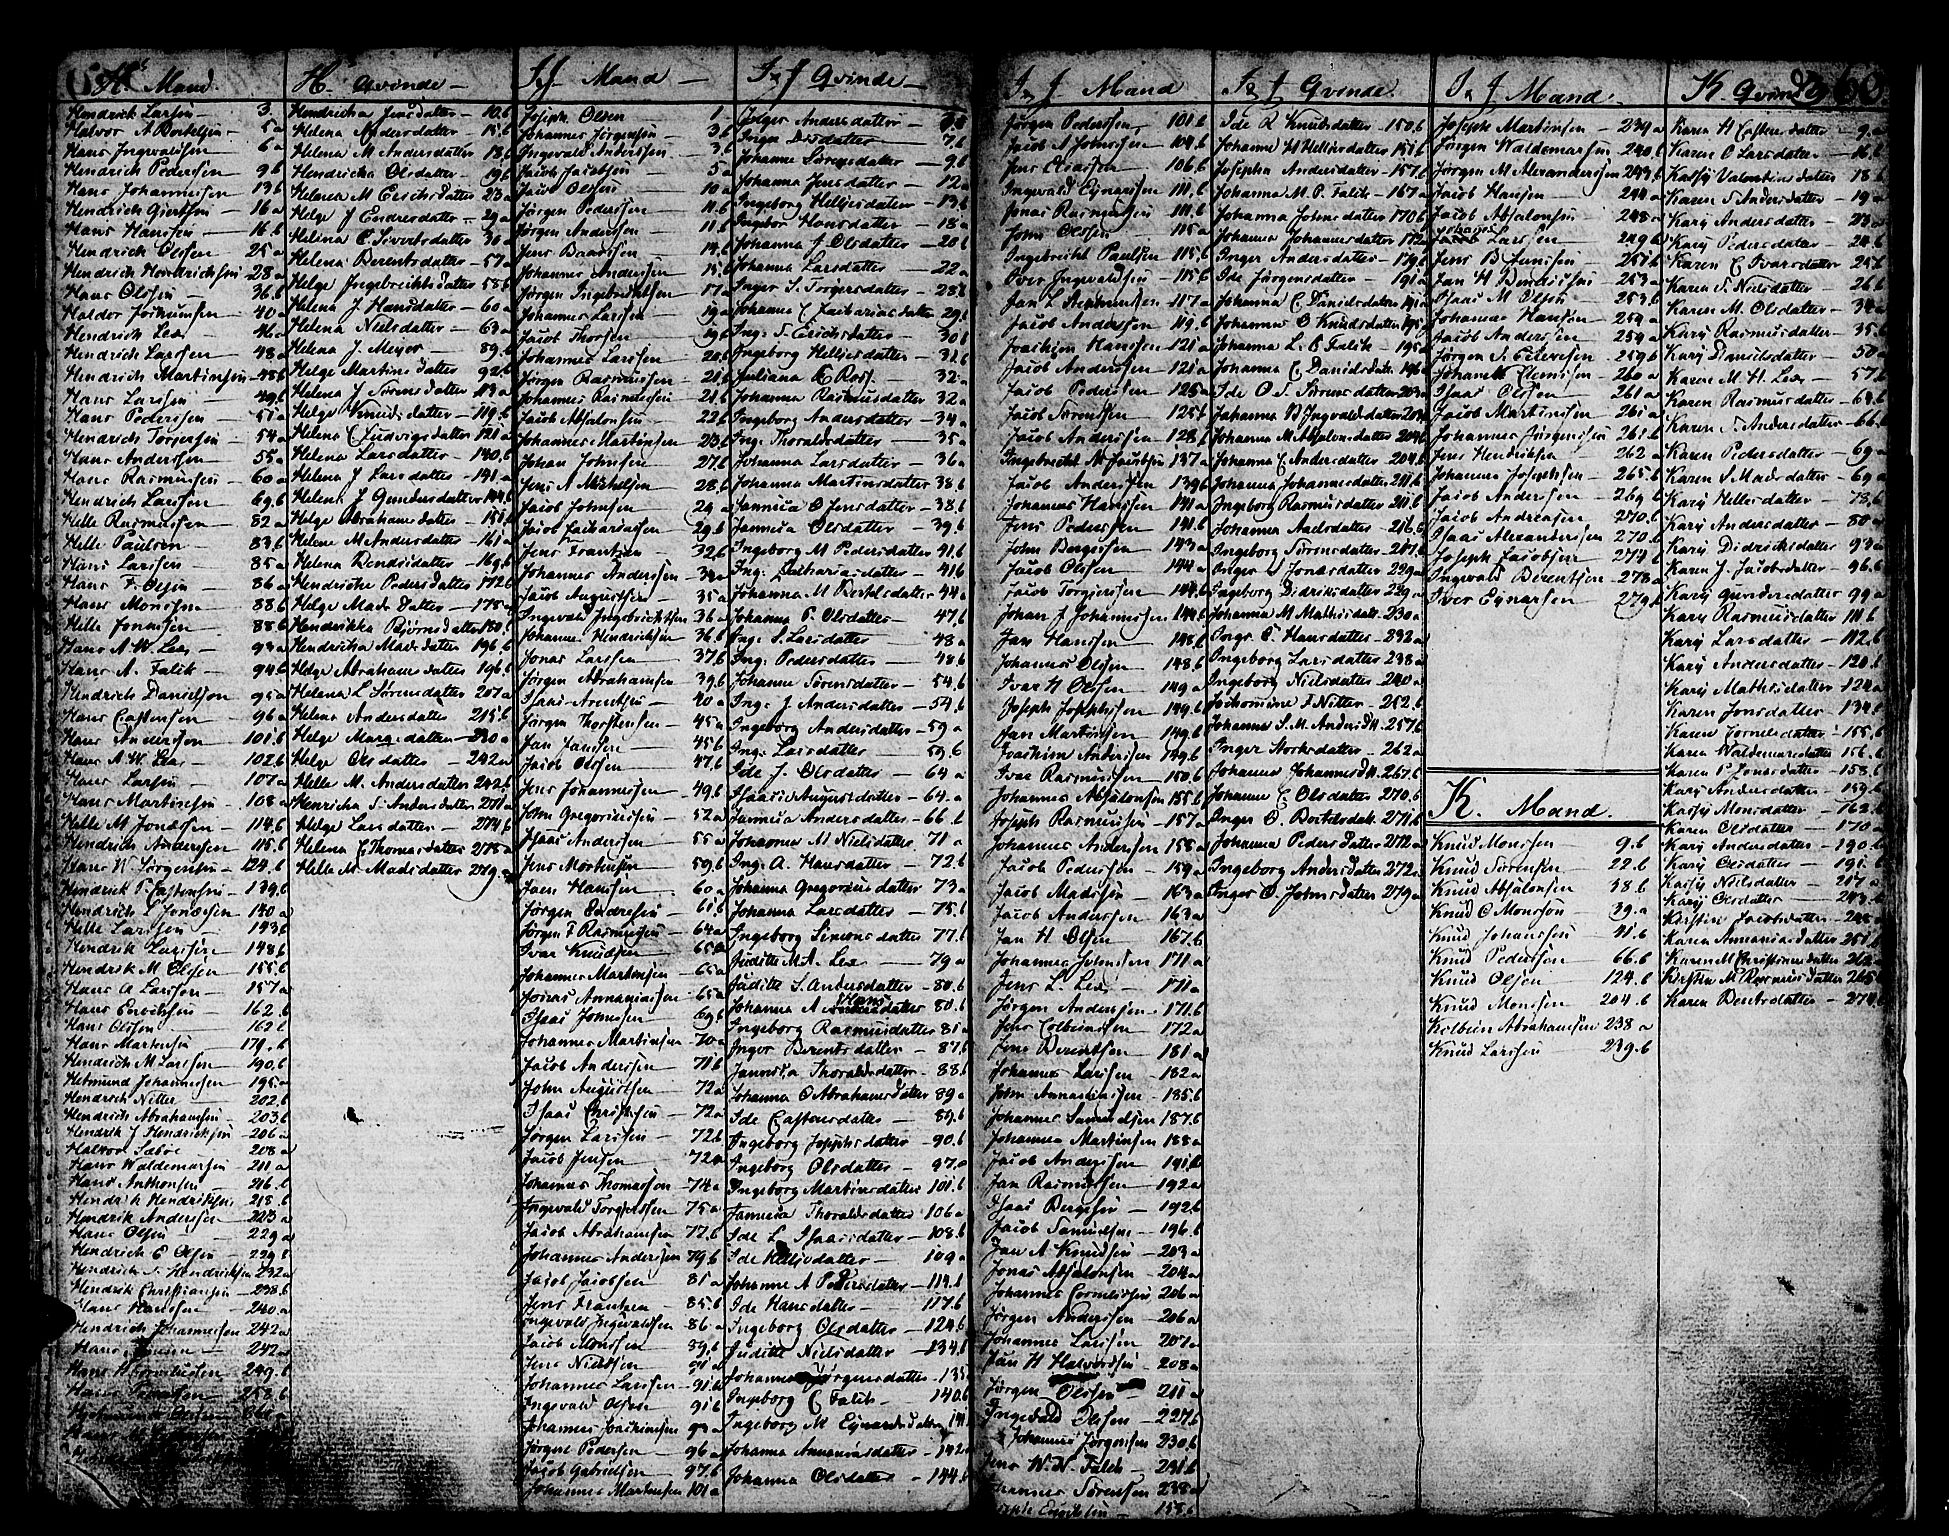 H. Mand.
Hendrick Larsen 3.
Halvor A Bertelsen 5 a
Hans Ingwaldsen 6 a
Hendrich Pedersen 9 b
Hans Johannessen 13 b
Hendrich Giertsen 16 a
Hans Hanssen 16 b
Hendrich Olssen 25 a
Hendrich Hendrichsen 28 a
Hans Olssen 36 b
Haldor Jockumsen 40 a
Hendrich Lea
Hendrich Larssen 48 a
Hendrich Martinsen 48 b
Hans Larssen 49 b
Hans Pederssen 51 a
Hendrich Torgersen 54 a
Hans Anderssen 55 a
Hans Rasmussen 60 a
Hendrich Larssen 69 b
Helle Rasmussen 82 a
Helle Paulsen 83 b
Hans Larssen 85 a
Hans F. Olsen 86 a
Hans Monssen 88 b
Helle Jonassen 88 b
Hans A. W. Lea 93 a
Hans A. Falik 94 b
Hendrich Danielsen 95 a
Hans Castensen 96 a
Hans Andersson 101 b
Hans A. W. Lea 102 b
Hans Larssen 107 a
Hans Martinssen 108 a
Helle M Jonassen 114 b
Hendrich Anderssen 115 b
Hans W. Jörgensen 124 b
Hendrick T. Castensen 139 b
Hendrich L Jonassen 140 a
Helle Larssen 143 b
Hendrik Larssen 148 b
Hendrik M. Olssen 155 b
Hans A Larssen 157 a
Hans Enochsen 162 b
Hans Olssen 162 b
Hans Martensen 179 b
Hendrich M Larssen 190 b
Helmund Johannessen 195 a
Hendrich Nitter 202 b
Hendrich Abrahamsen 203 b
Hendrik J Hendricksen 206 a
Halvor Sæbö 208 a
Hans Waldemarsen 211 a
Hans Anthonsen 216 b
Hendrik Hendriksen 218 b
Hendrik Anderssen 223 a
Hans Olssen 229 a
Hendrich O Olsen 229 b
Hendrich S. Hendricksen 232 a
Hendrik Christiansen 238 b
Hans Hanssen 240 a
Hendrich Johannessen 242 a
Hans 242 a
Hans H Corneliussen 249 b
Hans 258 b

H. Qvinde
Hendricha Jensdatter 10 b
Helena Andersdatter 15 b
Helena M Andersdatter 18 b
Hendricka Olsdatter 19 b
Helena M Erichsdatter 23 a
Helge J Endresdatter 29 a
Helina C. Sivertsdatter 30 a
Helena Berentsdatter 57 a
Helge Ingebrichtsdatter 58 b
Helena J Hansdatter 60 a
Helena Nielsdatter 63 a
Helena J. Meyer 89 b
Helge Martinsdatter 92 b
Helena J Sörensdatter 113 a
Helge Knudsdatter 119 b
Helena C Ludvigsdatter 121 a
Helena Larsdatter 140 b
Helena J Larsdatter 141 a
Helena J Gundersdatter 144 b
Helge Abrahamsdatter 151 b
Helene M Andersdatter 161 a
Helena Bendixdatter 169 b
Hendricke Pedersdatter 172 b
Helge Madsdatter 175 a
Hendrikka Bjørnsdatter 180 b
Hendricha Madsdatter 196 b
Helge Abrahamsdatter 196 b
Helena L Sörensdatter 207 a
Helena Andersdatter 215 b
Helge Margedatter 230 a
Helge Olsdatter 242 a
Helle M. Andersdatter 242 b
Henricha S Andersdatter 271 a
Helge Larsdatter 274 b
Helena C Thomasdatter 275 a
Helle M. Madsdatter 279 a

J. J Mand
Joseph Olsen 1
Johannes Jörgensen 3 b
Ingevald Anderssen 3 b
Jacob Jacobsen 5 a
Jacob Olssen 10 a
Jörgen Pederssen 11 b
Jörgen Anderssen 11 b
Jens Baardsen 14 b
Johannes Anderssen 15 b
Jörgen Ingebrichtsen 17 a
Johannes Larssen 19 a
Jacob Thorsen 19 b
Johannes Larssen 20 b
Jörgen Rasmussen 21 b
Johannes Rasmussen 21 b
Jacob Absalonsen 22 b
Johannes Martinssen 23 b
Johan Johnsen 27 b
Jens A Mickelsen 28 b
Jacob Johnsen 29 a
Jacob Zachariassen 29 b
Jens Frantzen 32 b
Johannes Anderssen 34 a
Jacob Augustsen 35 a
Ingevald Ingebrichtsen 36 a
Johannes Hendrichsen 36 b
Jonas Larssen 37 b
Jörgen Abrahamsen 39 b
Isaac Arentsen 40 a
Jörgen Thorstensen 45 a
Jan Janssen 45 b
Jacob Olssen 47 b
Jens Johannessen 49 b
John Gregoriussen 52 a
Isaac Anderssen 55 a
Jens Mortensen 59 b
Jens Hanssen 60 a
Jörgen Endresen 61 b
Jörgen F Rasmussen 64 a
Ivar Knudsen 65 b
Johannes Martensen 65 a
Jonas Annaniassen 65 a
Isaac Johnssen 69 b
Johannes Martinsen 70 a
Jacob Anderssen 71 b
John Augustsen 72 a
Isaac Christensen 72 a
Jörgen Larssen 72 b
Jacob Jensen 72 a
Johannes Thomassen 74 a
Ingevald Torgersen 75 a
Jacob Abrahamsen 77 b
Johannes Anderssen 79 b
Jacob Jacobsen 81 a
Jens Frantzen 85 b
Ingevald Ingevaldsen 86 a
Jacob Monssen 89 b
Jens Nielssen 91 a
Johannes Larssen 91 b
Ingevald Olsen 91 b
Johannes Joachimsen 93 a
Jörgen Pedersen 96 a
Jacob Gabrielsen 97 b
Johannes Martensen 101 a

J. J Qvinde
Andersdatter
Inger Isdatter 7 b
Johanne Sörensdatter 9 b
Johanna Jensdatter 12 a
Ingeborg Helljesdatter 13 b
Ingebor Hansdatter 18 a
Johanna J Olsdatter 20 b
Johanna Larsdatter 22 a
Inger S. Torgersdatter 28 b
Johanne C Zachariasdatter 29 b
Ing. S. Erichsdatter 30 b
Ingeborg Helljesdatter 31 b
Juliana C Ross 32 a
Johanna Rasmusdatter 32 a
Ingeborg Andersdatter 34 a
Ing. Thoraldsdatter 35 a
Johanna Larsdatter 36 a
Johanna Martinsdatter 38 b
Jannica O Jensdatter 38 b
Jannica Olsdatter 39 b
Ingeborg M Pedersdatter 41 b
Ing. Zachariasdatter 41 b
Johanna M Bertelsdatter 44 a
Johanna P. Olsdatter 47 b
Ing. S. Larsdatter 48 a
Ing. Pedersdatter 48 b
Johanne Sörensdatter 54 b
Ing. J Andersdatter 54 b
Ingeborg Andersdatter 59 a
Ing. Larsdatter 59 b
Ide J. Olsdatter 64 a
Isaacie Augustsdatter 64 a
Jannica Andersdatter 66 b
Johanna M Nielsdatter 71 a
Ing. A. Hansdatter 72 b
Johanna Gregoriusdatter 73 a
Johanna Larsdatter 75 b
Ingeborg Simonsdatter 77 b
Juditte M A. Lea 79 a
Juditte S. Andersdatter 80 b
Johanna A Hansdatter 80 b
Ingeborg Rasmusdatter 81 a
Inger Berentsdatter 87 b
Jannica Thoraldsdatter 88 b
Johanna O Abrahamsdatter 89 a
Ide Castensdatter 89 b
Ingeborg Josephsdatter 90 b
Ingeborg Olsdatter 97 a
Ingeborg Martinsdatter 101 b
Jannica Thoraldsdatter 106 a
Ide L Isaacsdatter 108 b
Ide Helljesdatter 109 a
Johanne A Pedersdatter 114 b
Ide Hansdatter 117 b
Ingeborg Olsdatter 124 b
Juditte Nielsdatter 134 b
Johanne Jörgensdatter 135
Ingeborg C Falik 140 b
Ingeborg M Ejnarsdatter 141
Johanna Annaniasdatter 142 a
Johanna Olsdatter 144 b

J. J Mand
Jörgen Pederssen 101 b
Jacob A Johnssen 104 b
Jens Claussen 106 b
Ingevald Ejnarssen 111 b
Jonas Rasmussen 111 b
John Olssen 115 a
Ingebricht Paulsen 115 b
Iver Ingevaldsen 115 b
Jan L. Stemmensen 117 a
Jacob Anderssen 119 b
Joachim Hanssen 121 a
Jacob Anderssen 121 a
Jacob Pederssen 125 a
Jacob Sörenssen 125 b
Jacob Anderssen 128 b
Ingebricht M Jacobsen 137 a
Jacob Anderssen 139 b
Johannes Hanssen 141 a
Jens Pederssen 141 b
John Bergessen 143 a
Jacob Olssen 144 a
Jacob Torgersen 144 b
Johan J Johannessen 144 b
Jan Hanssen 148 b
Johannes Olssen 148 b
Ivar H Olssen 149 a
Joseph Josephsen 149 b
Jan Martinsen 149 b
Joachim Anderssen 149 b
Ivar Rasmussen 150 b
Johannes Absalonsen 155 b
Joseph Rasmussen 157 a
Johannes Anderssen 158 a
Jacob Pederssen 159 a
Jacob Madssen 163 a
Jacob Anderssen 163 a
Jan H. Olsen 167 b
Johannes Johnssen 171 a
Jens L. Lea 171 a
Jörgen Anderssen 171 b
Jens Colbeinsen 172 a
Jens Berentsen 181 a
Johannes Larssen 182 a
John Annaniassen 185 b
Johannes Samuelsen 187 b
Johannes Martinsen 188 a
Jacob Anderssen 191 b
Jan Rasmussen 192 a
Isaac Bergesen 192 b
Jacob Samuelsen 196 b
Jan A Knudsen 203 a
Jonas Absalonsen 204 a
Johannes Corneliussen 206 a
Jörgen Anderssen 206 a
Johannes Larssen 207 a
Jan H Halvordsen 208 a
Jörgen Olssen 211 a
Ingevald Olssen 227 b
Johannes Jörgenssen 230 b
Jens W. N. Falck 231 b
Johannes Sörenssen 238 a

J. J Qvinde
Ide R Knudsdatter 150 b
Johanne H Helljesdatter 151 b
Josepha Andersdatter 157 b
Johanna M. P. Falik 167 a
Johanna Johnsdatter 170 b
Johanna Johannesdatter 172 a
Inger Andersdatter 179 b
Ide Jörgensdatter 191 a
Johanna C. Danielsdatter 191 a
Johanna O Knudsdatter 195 a
Johanna L. C Falik 195 a
Johanna C. Danielsdatt. 196 a
Ide O. S. Sörensdatter 203 a
Johanna B Ingevaldsdatter 204
Johanna M Absalonsdatter 204 b
Johanna C Andersdatter 204 b
Johanna Johannesdatter 211 b
Ingeborg Rasmusdatter 211 b
Johanna Axelsdatter 216 b
Ingeborg Sörensdatter 217 b
Inger S Jonasdatter 229 a
Ingeborg Didriksdatter 229 a
Johanna M Mathisdatt. 230 a
Inger C. Hansdatter 232 a
Ingeborg Larsdatter 238 a
Ingeborg Nielsdatter 240 a
Jochomine F Nitter 252 b
Johanna S. M. Andersd. 257 b
Inger Storksdatter 262 a
Johanna Johannesd. 267 b
Johanne C Olsdatter 270 b
Inger O. Bertelsdatt. 271 b
Johanna Pedersdatter 272 a
Ingeborg Andersdatter 272
Inger O. Johnsdatter 279 a

J. J Mand.
Joseph Martinsen 239 a
Jörgen Waldemarsen 240 b
Jörgen M Alexanderssen 243 b
Jacob Hansen 244 a
Jacob Absalonsen 248 a
Johannes Larssen 249 b
Jens B Jenssen 251 b
Jan H Bendixsen 253 a
Isaac M Olsen 253 b
Johannes Hansen 254 a
Jacob Anderssen 254 a
Jörgen S. Eilevesen 259 b
Johannes Clemetsen 260 a
Isaac Olssen 261 a
Jacob Martinsen 261 a
Johannes Jörgenssen 261 b
Jens Hendriksen 262 a
Johannes Josephsen 265 b
Jacob Anderssen 269 b
Jacob Andreasen 270 b
Isaac Alexandersen 270 b
Joseph Jacobsen 274 b
Ingevald Berentsen 278 a
Iver Ejnarsen 279 b

K. Mand.
Knud Monssen 9 b
Knud Sörensen 22 b
Knud Absalonsen 38 b
Knud O Monssen 39 a
Knud Johanssen 41 b
Knud Pederssen 66 b
Knud Olssen 124 b
Knud Monssen 204 b
Kolbein Abrahamsen 238 a
Knud Larssen 239 b

K. Qvinde
Karen H Castensdatter 9 a
Karen O Larsdatter 16 b
Kaisy Valentinsdatter 18 b
Karen S Andersdatter 19 a
Kary Andersdatter 23 a
Kary Pedersdatter 24 b
Karen C Ivarsdatter 25 b
Karen S Nielsdatter 26 b
Karen M. Olsdatter 34 a
Kary Rasmusdatter 35 b
Kary Danielsdatter 50 a
Karen M. H. Lea 57 b
Karen Rasmusdatter 64 b
Karen S Andersdatter 66 b
Karen Pedersdatter 69 a
Karen S Madsdatter 69 a
Kary Hellesdatter 78 b
Kary Andersdatter 80 a
Kary Didriksdatter 93 a
Karen J. Jacobsdatter 96 b
Kary Gundersdatter 99 a
Kary Rasmusdatter 111 b
Kary Larsdatter 112 b
Kary Andersdatter 120 b
Kary Mathisdatter 124 a
Karen Jonsdatter 134 b
Karen Cornelisdatter 155 b
Karen Waldemarsdatter 156 b
Karen P Jonasdatter 158 b
Kary Andersdatter 159 b
Kaisy Monsdatter 162 b
Karen Olsdatter 170 a
Kary Andersdatter 190 b
Kary Olsdatter 191 b
Kaisy Nielsdatter 217 a
Kary Olsdatter 243 b
Kirstin Jacobsdatter 248 a
Karen Annaniasdatter 251 b
Karen M Christiansdatter 262 a
Kirstin M Rasmusdatter 265
Karen Berntsdatter 274 b